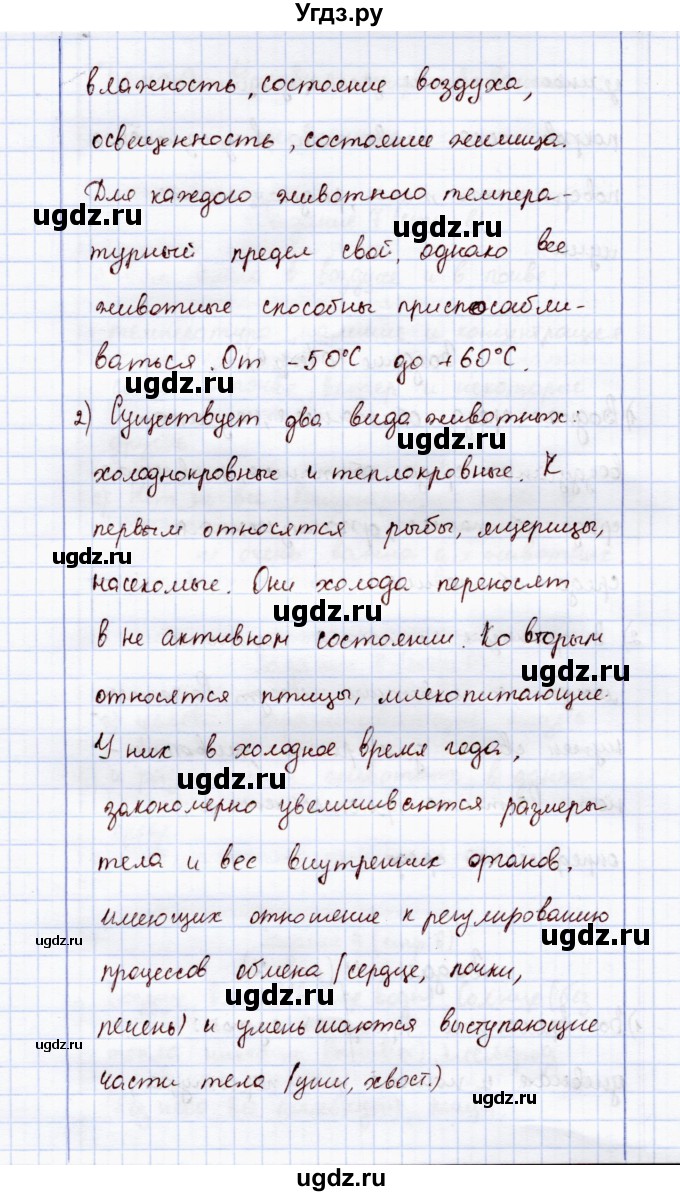 Угдз.ру
влажность, состояние воздуха,
освещенность, состояние жилища.
Для каждого животного темпера-
ugdz.ru
ugdz.ru
турный предел свой, однако все
животные способны приспосабли-
ваться. От -50°С до +60°С.
ugdz.ru
2) Существует два вида животных:
ugdz.ru
холоднокровные и теплокровные. К
первым относятся рыбы, ящерицы,
ugdz.ru
насекомые. Они холода переносят
ugdz.ru
в не активном состоянии. Ко вторым
ugdz.ru
относятся птицы, млекопитающие.
У них в холодное время года,
ugdz.ru
закономерно увеличиваются размеры
тела и вес внутренних органов,
имеющих отношение к регулированию
ugdz.ru
ugdz.ru
процессов обмена (сердце, почки,
ugdz.ru
печень) и уменьшаются выступающие
ugdz.ru
части тела (уши, хвост.)
ugdz.ru
ugdz.ru